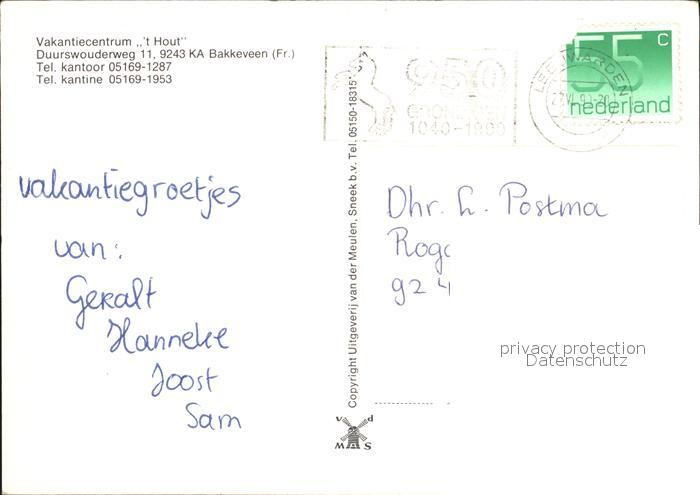 Vakantiecentrum „'t Hout"
Duurswouderweg 11, 9243 KA Bakkeveen (Fr.)
Tel. kantoor 05169-1287
Tel. kantine 05169-1953
950
1040-1990
LEEUWARDEN
55 c
nederland
vakantiegroetjes
van:
Geralt
Hanneke
Joost
Sam
Copyright Uitgeverij van der Meulen, Sneek b.v. Tel. 05150-18315
Dhr. L. Postma
924
privacy protection
Datenschutz
v d
MAS